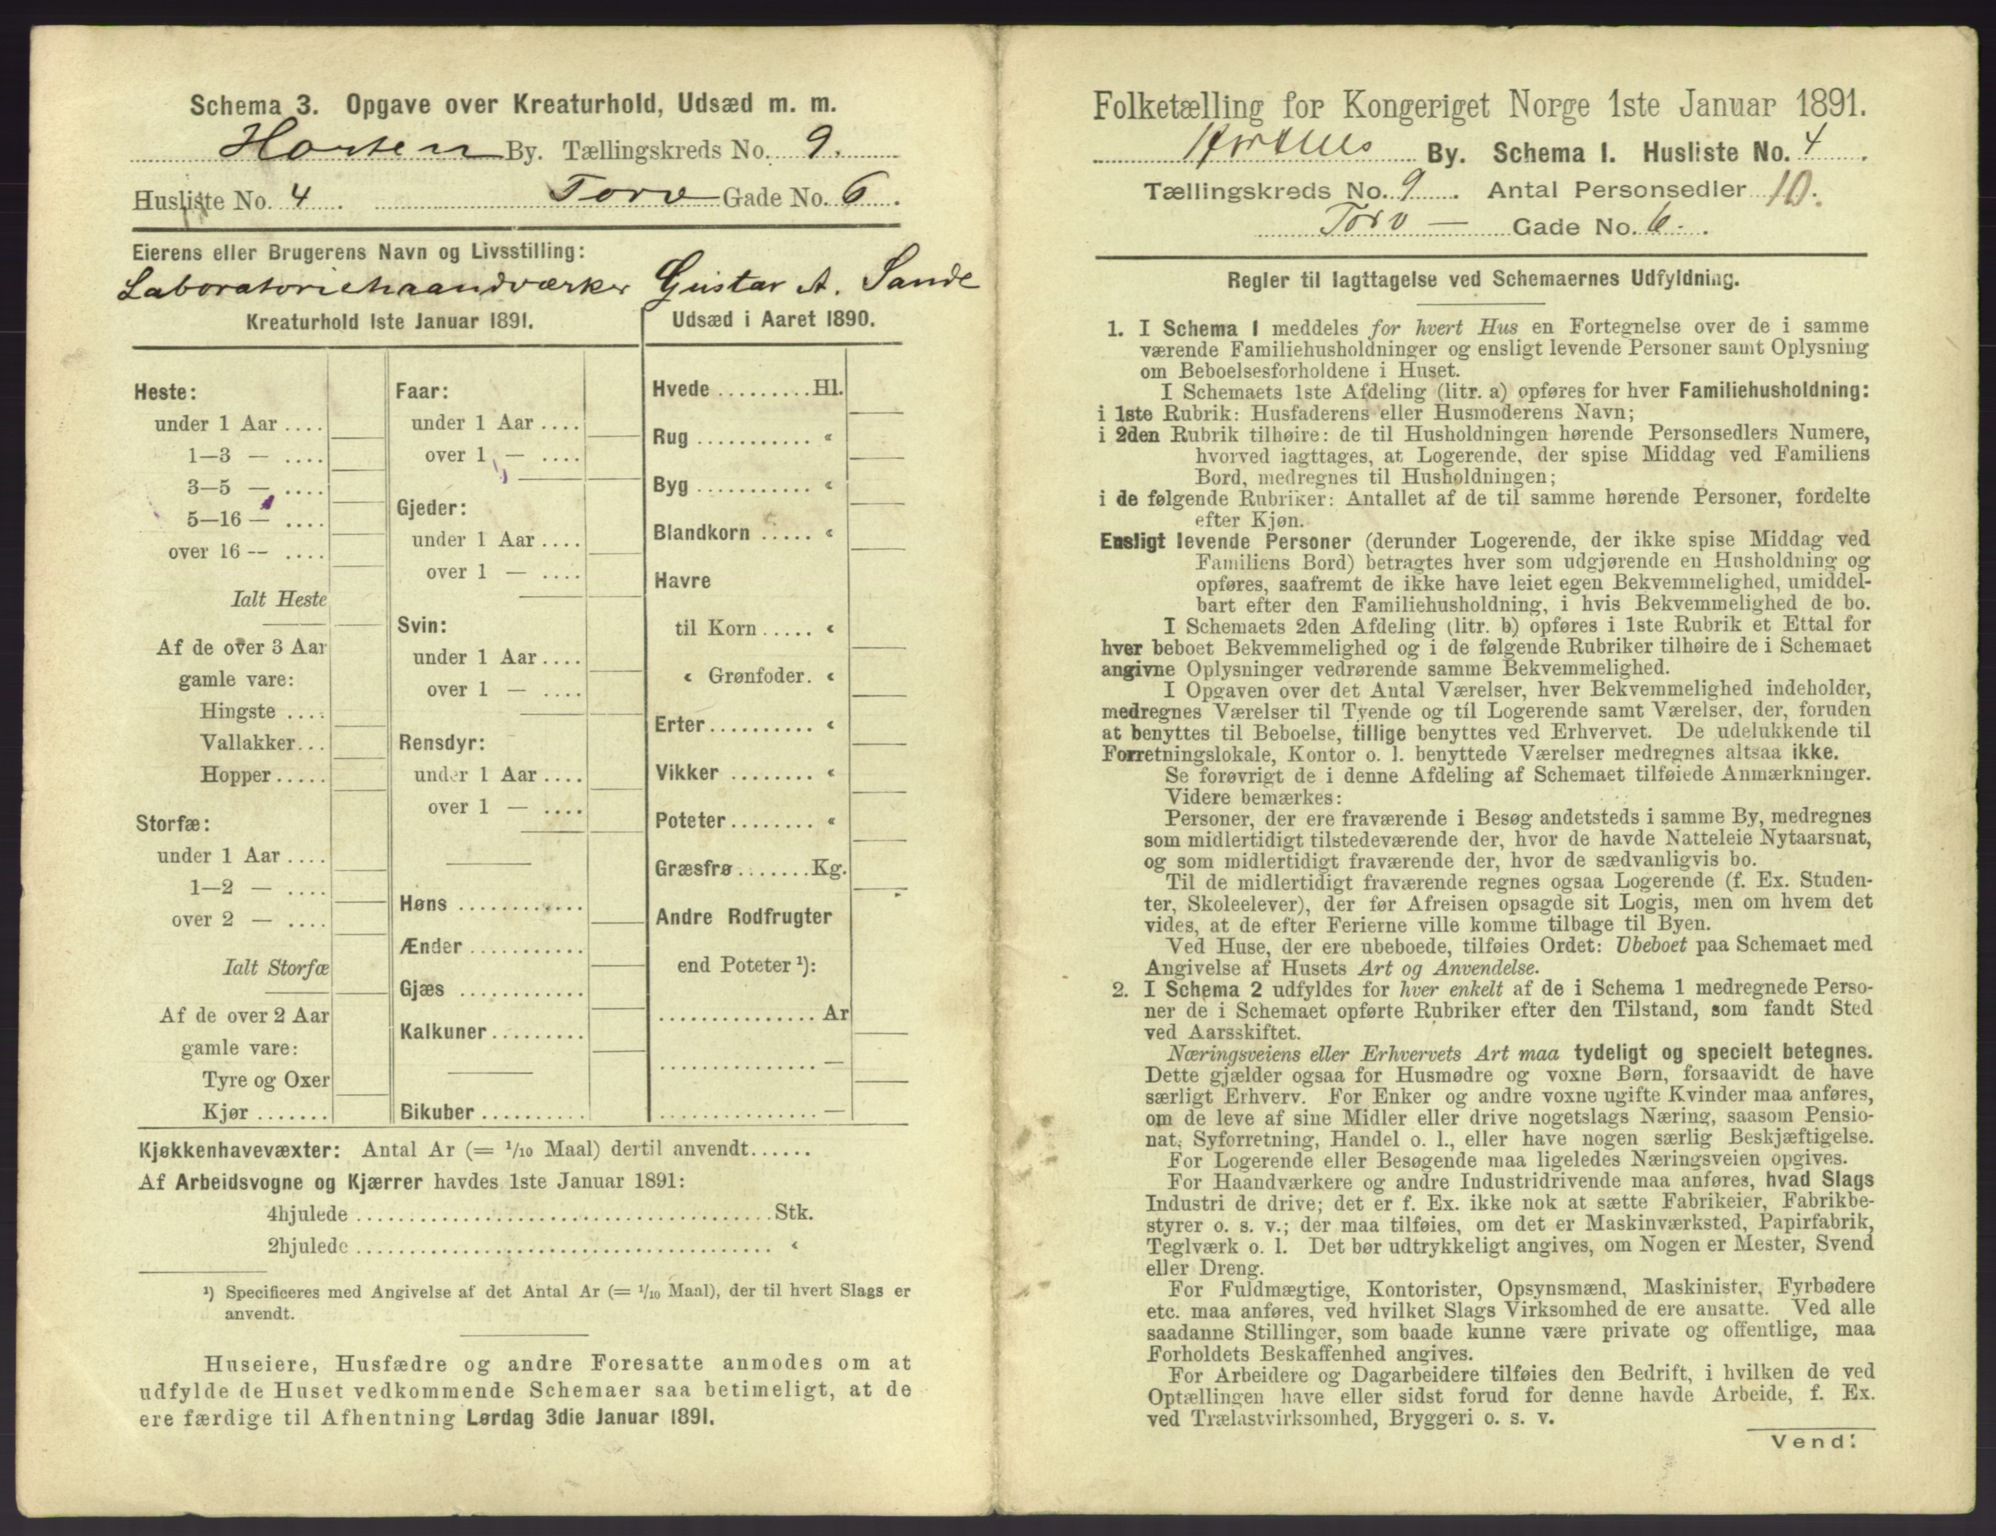 Schema 3. Opgave over Kreaturhold, Udsæd m. m.
Horten By. Tællingskreds No. 9.
Husliste No. 4. Torv Gade No. 6.
Eierens eller Brugerens Navn og Livsstilling:
Laboratoriehaandværker Gustav A. Sande
Kreaturhold 1ste Januar 1891.
Heste:
under 1 Aar ....
1—3 — ....
3—5 — ....
5—16 — ....
over 16 — ....
Ialt Heste
Af de over 3 Aar
gamle vare:
Hingste ....
Vallakker...
Hopper.....
Storfæ:
under 1 Aar ....
1—2 — ....
over 2 — ....
Ialt Storfæ
Af de over 2 Aar
gamle vare:
Tyre og Oxer
Kjør .......
Faar:
under 1 Aar ....
over 1 — ....
Gjeder:
under 1 Aar ....
over 1 — ....
Svin:
under 1 Aar ....
over 1 — ....
Rensdyr:
under 1 Aar ....
over 1 — ....
Høns ..........
Ænder .........
Gjæs ..........
Kalkuner ........
Bikuber ..........
Udsæd i Aaret 1890.
Hvede ......... Hl.
Rug ........... «
Byg ........... «
Blandkorn ..... «
Havre
til Korn ..... «
« Grønfoder. «
Erter .......... «
Vikker ........ «
Poteter ........ «
Græsfrø ....... Kg.
Andre Rodfrugter
end Poteter ¹):
............... Ar
............... —
............... —
Kjøkkenhavevæxter: Antal Ar (= 1/10 Maal) dertil anvendt......
Af Arbeidsvogne og Kjærrer havdes 1ste Januar 1891:
4hjulede ........................................ Stk.
2hjulede ........................................ «
¹) Specificeres med Angivelse af det Antal Ar (= 1/10 Maal), der til hvert Slags er
anvendt.
Huseiere, Husfædre og andre Foresatte anmodes om at
udfylde de Huset vedkommende Schemaer saa betimeligt, at de
ere færdige til Afhentning Lørdag 3die Januar 1891.
Folketælling for Kongeriget Norge 1ste Januar 1891.
Hortens By. Schema 1. Husliste No. 4.
Tællingskreds No. 9. Antal Personsedler 10.
Torv — Gade No. 6.
Regler til Iagttagelse ved Schemaernes Udfyldning.
1. I Schema 1 meddeles for hvert Hus en Fortegnelse over de i samme
værende Familiehusholdninger og ensligt levende Personer samt Oplysning
om Beboelsesforholdene i Huset.
I Schemaets 1ste Afdeling (litr. a) opføres for hver Familiehusholdning:
i 1ste Rubrik: Husfaderens eller Husmoderens Navn;
i 2den Rubrik tilhøire: de til Husholdningen hørende Personsedlers Numere,
hvorved iagttages, at Logerende, der spise Middag ved Familiens
Bord, medregnes til Husholdningen;
i de følgende Rubriker: Antallet af de til samme hørende Personer, fordelte
efter Kjøn.
Ensligt levende Personer (derunder Logerende, der ikke spise Middag ved
Familiens Bord) betragtes hver som udgjørende en Husholdning og
opføres, saafremt de ikke have leiet egen Bekvemmelighed, umiddel-
bart efter den Familiehusholdning, i hvis Bekvemmelighed de bo.
I Schemaets 2den Afdeling (litr. b) opføres i 1ste Rubrik et Ettal for
hver beboet Bekvemmelighed og i de følgende Rubriker tilhøire de i Schemaet
angivne Oplysninger vedrørende samme Bekvemmelighed.
I Opgaven over det Antal Værelser, hver Bekvemmelighed indeholder,
medregnes Værelser til Tyende og til Logerende samt Værelser, der, foruden
at benyttes til Beboelse, tillige benyttes ved Erhvervet. De udelukkende til
Forretningslokale, Kontor o. l. benyttede Værelser medregnes altsaa ikke.
Se forøvrigt de i denne Afdeling af Schemaet tilføiede Anmærkninger.
Videre bemærkes:
Personer, der ere fraværende i Besøg andetsteds i samme By, medregnes
som midlertidigt tilstedeværende der, hvor de havde Natteleie Nytaarsnat,
og som midlertidigt fraværende der, hvor de sædvanligvis bo.
Til de midlertidigt fraværende regnes ogsaa Logerende (f. Ex. Studen-
ter, Skoleelever), der før Afreisen opsagde sit Logis, men om hvem det
vides, at de efter Ferierne ville komme tilbage til Byen.
Ved Huse, der ere ubeboede, tilføies Ordet: Ubeboet paa Schemaet med
Angivelse af Husets Art og Anvendelse.
2. I Schema 2 udfyldes for hver enkelt af de i Schema 1 medregnede Perso-
ner de i Schemaet opførte Rubriker efter den Tilstand, som fandt Sted
ved Aarsskiftet.
Næringsveiens eller Erhvervets Art maa tydeligt og specielt betegnes.
Dette gjælder ogsaa for Husmødre og voxne Børn, forsaavidt de have
særligt Erhverv. For Enker og andre voxne ugifte Kvinder maa anføres,
om de leve af sine Midler eller drive nogetslags Næring, saasom Pensio-
nat, Syforretning, Handel o. l., eller have nogen særlig Beskjæftigelse.
For Logerende eller Besøgende maa ligeledes Næringsveien opgives.
For Haandværkere og andre Industridrivende maa anføres, hvad Slags
Industri de drive; det er f. Ex. ikke nok at sætte Fabrikeier, Fabrikbe-
styrer o. s. v.; der maa tilføies, om det er Maskinværksted, Papirfabrik,
Teglværk o. l. Det bør udtrykkeligt angives, om Nogen er Mester, Svend
eller Dreng.
For Fuldmægtige, Kontorister, Opsynsmænd, Maskinister, Fyrbødere
etc. maa anføres, ved hvilket Slags Virksomhed de ere ansatte. Ved alle
saadanne Stillinger, som baade kunne være private og offentlige, maa
Forholdets Beskaffenhed angives.
For Arbeidere og Dagarbeidere tilføies den Bedrift, i hvilken de ved
Optællingen have eller sidst forud for denne havde Arbeide, f. Ex.
ved Trælastvirksomhed, Bryggeri o. s. v.
Vend!